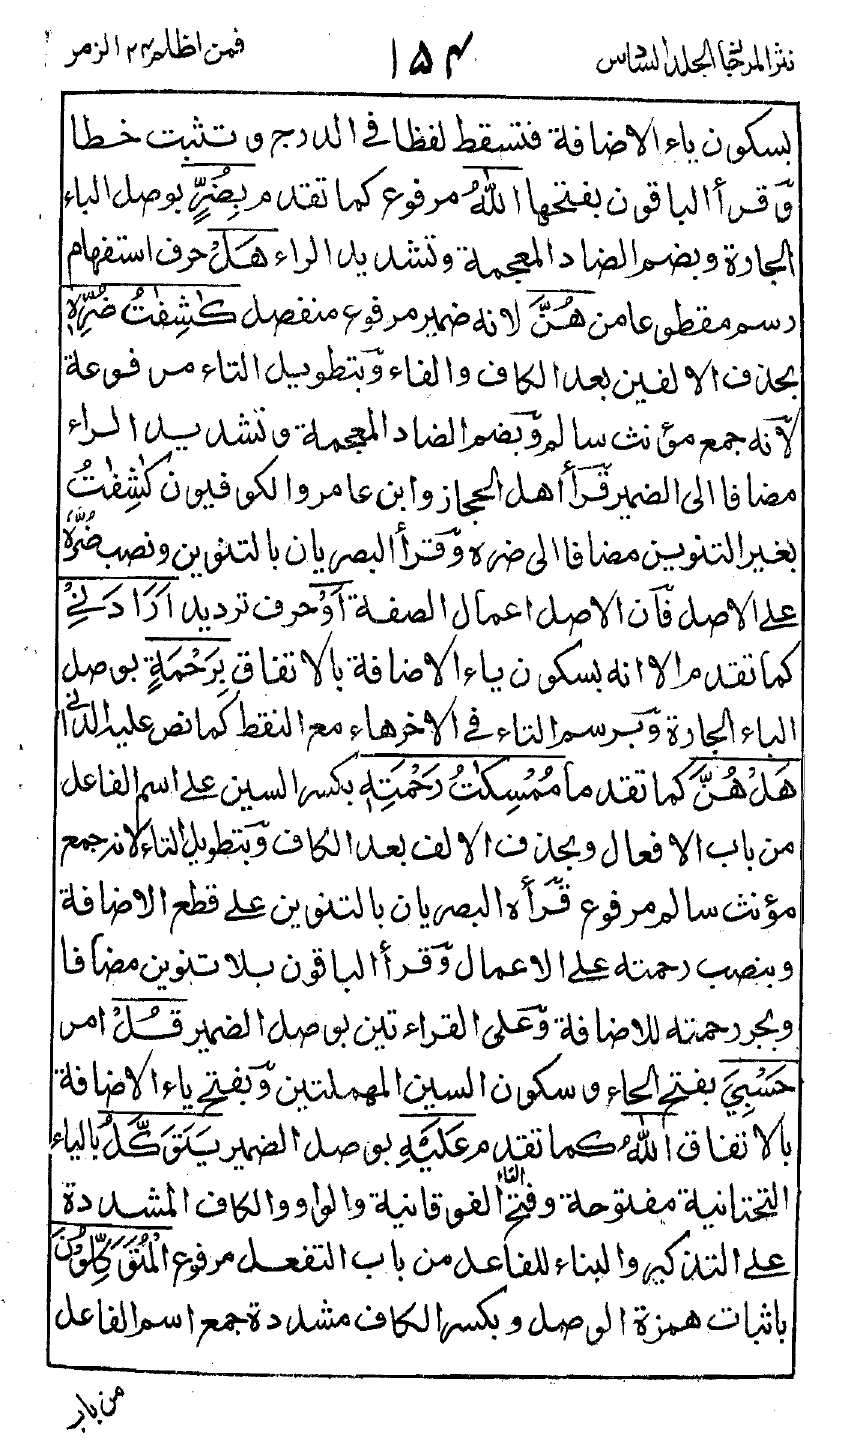 نثر المرجان الجلد السادس
١٥٤
فمن اظلم ٢٤ الزمر
بسكون ياء الاضافة فتسقط لفظا في الدرج و تثبت خطا
وقرأ الباقون بفتحها اللهُ مرفوع كما تقدم بِضُرٍّ بوصل الباء
الجارة وبضم الضاد المعجمة وتشديد الراء هَلْ حرف استفهام
رسم مقطوعا من هُنَّ لانه ضمير مرفوع منفصل كٰشِفٰتُ ضُرِّهٖ
بحذف الالفين بعد الكاف والفاء وبتطويل التاء مرفوعة
لانه جمع مؤنث سالم وبضم الضاد المعجمة وتشديد الراء
مضافا الى الضمير قرأ اهل الحجاز وابن عامر والكوفيون كٰشِفٰتُ
بغير التنوين مضافا الى ضره وقرأ البصريان بالتنوين ونصب ضُرَّهٗ
على الاصل فان الاصل اعمال الصفة اَوْ حرف ترديد اَرَادَنِيْ
كما تقدم الا انه بسكون ياء الاضافة بالاتفاق بِرَحْمَةٍ بوصل
الباء الجارة وبرسم التاء في الاخر هاء مع النقط كما نص عليه الداني
هَلْ هُنَّ كما تقدما مُمْسِكٰتُ رَحْمَتِهٖ بكسر السين على اسم الفاعل
من باب الافعال وبحذف الالف بعد الكاف وبتطويل التاء لانه جمع
مؤنث سالم مرفوع قرأه البصريان بالتنوين على قطع الاضافة
وبنصب رحمته على الاعمال وقرأ الباقون بلا تنوين مضافا
وبجر رحمته للاضافة وعلى القراءتين بوصل الضمير قُلْ امر
حَسْبِيَ بفتح الحاء وسكون السين المهملتين وبفتح ياء الاضافة
بالاتفاق اللهُ كما تقدم عَلَيْهِ بوصل الضمير يَتَوَكَّلُ بالياء
التحتانية مفتوحة وفتح التاء الفوقانية والواو والكاف المشددة
على التذكير والبناء للفاعل من باب التفعل مرفوع الْمُتَوَكِّلُوْنَ
باثبات همزة الوصل وبكسر الكاف مشددة جمع اسم الفاعل
من باب